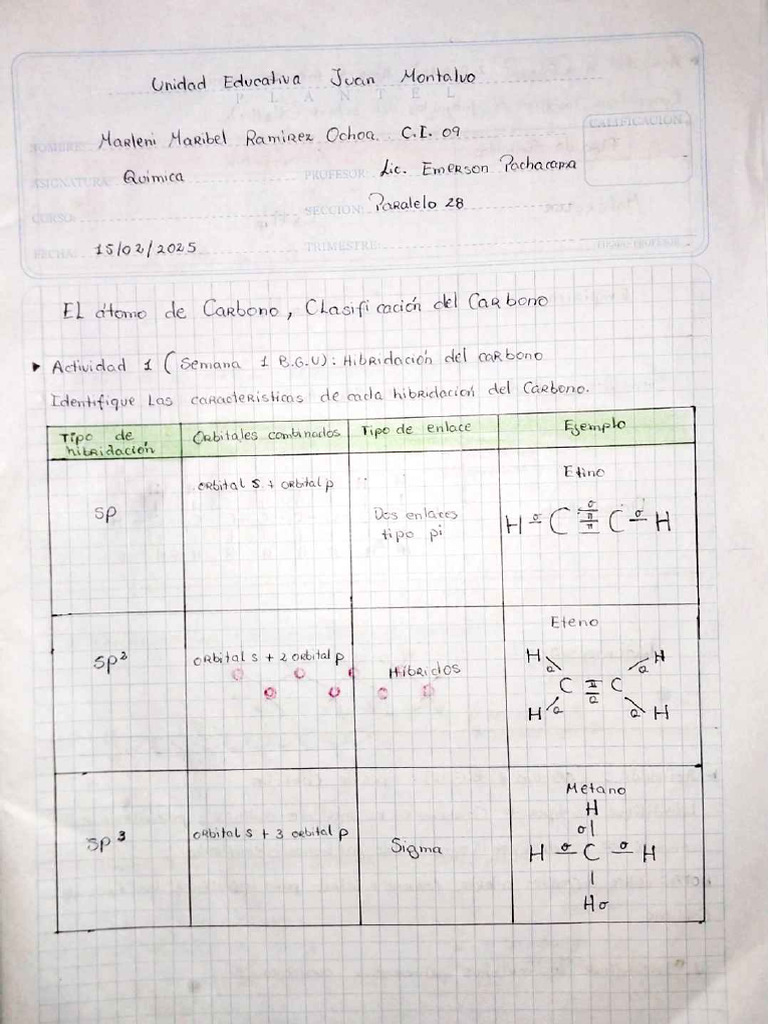 Unidad Educativa Juan Montalvo
PLANTEL
NOMBRE: Marleni Maribel Ramirez Ochoa. C.I. 09
CALIFICACIÓN
ASIGNATURA: Quimica PROFESOR: Lic. Emerson Pachacama
CURSO: SECCIÓN: Paralelo 28
FECHA: 15/02/2025 TRIMESTRE:
EL átomo de Carbono, Clasificación del Carbono
Actividad 1 (Semana 1 B.G.U): Hibridación del carbono
Identifique Las características de cada hibridación del Carbono.
Tipo de hibridación Orbitales combinados Tipo de enlace Ejemplo
sp
orbital s + orbital p
Dos enlaces
tipo pi
Etino
H σ C σ π π C σ H
sp²
orbital s + 2 orbital p
Híbridos
Eteno
H H
σ σ
C π σ C
σ σ
H H
sp³
orbital s + 3 orbital p
Sigma
Metano
H
σ
H σ C σ H
H σ